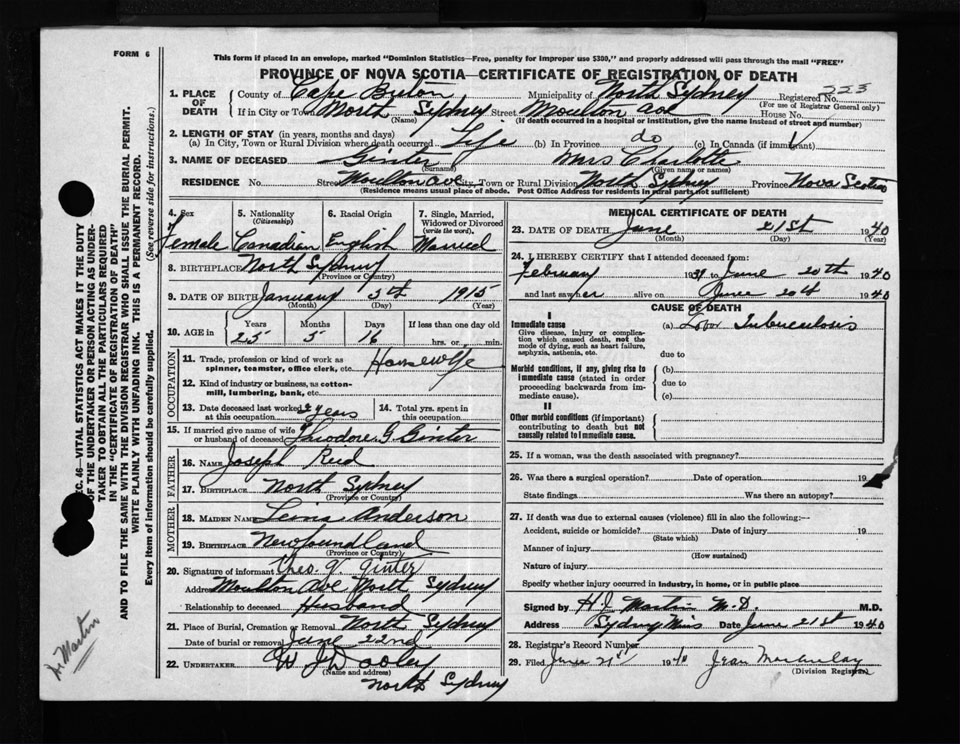 FORM 6
This form if placed in an envelope, marked "Dominion Statistics—Free, penalty for improper use $300," and properly addressed will pass through the mail "FREE"
PROVINCE OF NOVA SCOTIA—CERTIFICATE OF REGISTRATION OF DEATH
1. PLACE OF DEATH
County of Cape Breton Municipality of North Sydney Registered No. 223
(For use of Registrar General only)
If in City or Town North Sydney Street Moulton Ave House No.
(Name) (If death occurred in a hospital or institution, give the name instead of street and number)
2. LENGTH OF STAY (in years, months and days)
(a) In City, Town or Rural Division where death occurred Life (b) In Province do (c) In Canada (if immigrant)
3. NAME OF DECEASED Ginter Mrs Charlotte
(Surname) (Given name or names)
RESIDENCE No. Street Moulton Ave City, Town or Rural Division North Sydney Province Nova Scotia
(Residence means usual place of abode. Post Office Address for residents in rural parts not sufficient)
4. Sex
Female
5. Nationality
(Citizenship)
Canadian
6. Racial Origin
English
7. Single, Married, Widowed or Divorced
(write the word).
Married
8. BIRTHPLACE North Sydney
(Province or Country)
9. DATE OF BIRTH January 5th 1915
(Month) (Day) (Year)
10. AGE in
Years Months Days If less than one day old
25 5 16 hrs. or min.
OCCUPATION
11. Trade, profession or kind of work as spinner, teamster, office clerk, etc. Housewife
12. Kind of industry or business, as cotton-mill, lumbering, bank, etc.
13. Date deceased last worked at this occupation 2 years
14. Total yrs. spent in this occupation
15. If married give name of wife or husband of deceased Theodore G Ginter
FATHER
16. NAME Joseph Reid
17. BIRTHPLACE North Sydney
(Province or Country)
MOTHER
18. MAIDEN NAME Lena Anderson
19. BIRTHPLACE Newfoundland
(Province or Country)
20. Signature of informant Theo. V. Ginter
Address Moulton Ave North Sydney
Relationship to deceased Husband
21. Place of Burial, Cremation or Removal North Sydney
Date of burial or removal June 22nd
22. UNDERTAKER W J Dooley
(Name and address)
North Sydney
MEDICAL CERTIFICATE OF DEATH
23. DATE OF DEATH June 21st 1940
(Month) (Day) (Year)
24. I HEREBY CERTIFY that I attended deceased from:
February 1939 to June 20th 1940
and last saw her alive on June 20th 1940
CAUSE OF DEATH
I
Immediate cause
Give disease, injury or complication which caused death, not the mode of dying, such as heart failure, asphyxia, asthenia, etc.
(a) Tuberculosis
due to
Morbid conditions, if any, giving rise to immediate cause (stated in order proceeding backwards from immediate cause).
(b)
due to
(c)
II
Other morbid conditions (if important) contributing to death but not causally related to immediate cause.
25. If a woman, was the death associated with pregnancy?
26. Was there a surgical operation? Date of operation 19
State findings Was there an autopsy?
27. If death was due to external causes (violence) fill in also the following:—
Accident, suicide or homicide? Date of injury 19
(State which)
Manner of injury
(How sustained)
Nature of injury
Specify whether injury occurred in industry, in home, or in public place
Signed by H J Martin M.D. M.D.
Address Sydney Mines Date June 21st 1940
28. Registrar's Record Number
29. Filed June 21st 1940 Jean Macaulay
(Division Registrar)
SEC. 46—VITAL STATISTICS ACT MAKES IT THE DUTY
OF THE UNDERTAKER OR PERSON ACTING AS UNDER-
TAKER TO OBTAIN ALL THE PARTICULARS REQUIRED
IN THE "CERTIFICATE OF REGISTRATION OF DEATH"
AND TO FILE THE SAME WITH THE DIVISION REGISTRAR WHO SHALL ISSUE THE BURIAL PERMIT.
WRITE PLAINLY WITH UNFADING INK. THIS IS A PERMANENT RECORD.
Every item of information should be carefully supplied. (See reverse side for instructions.)
Dr Martin